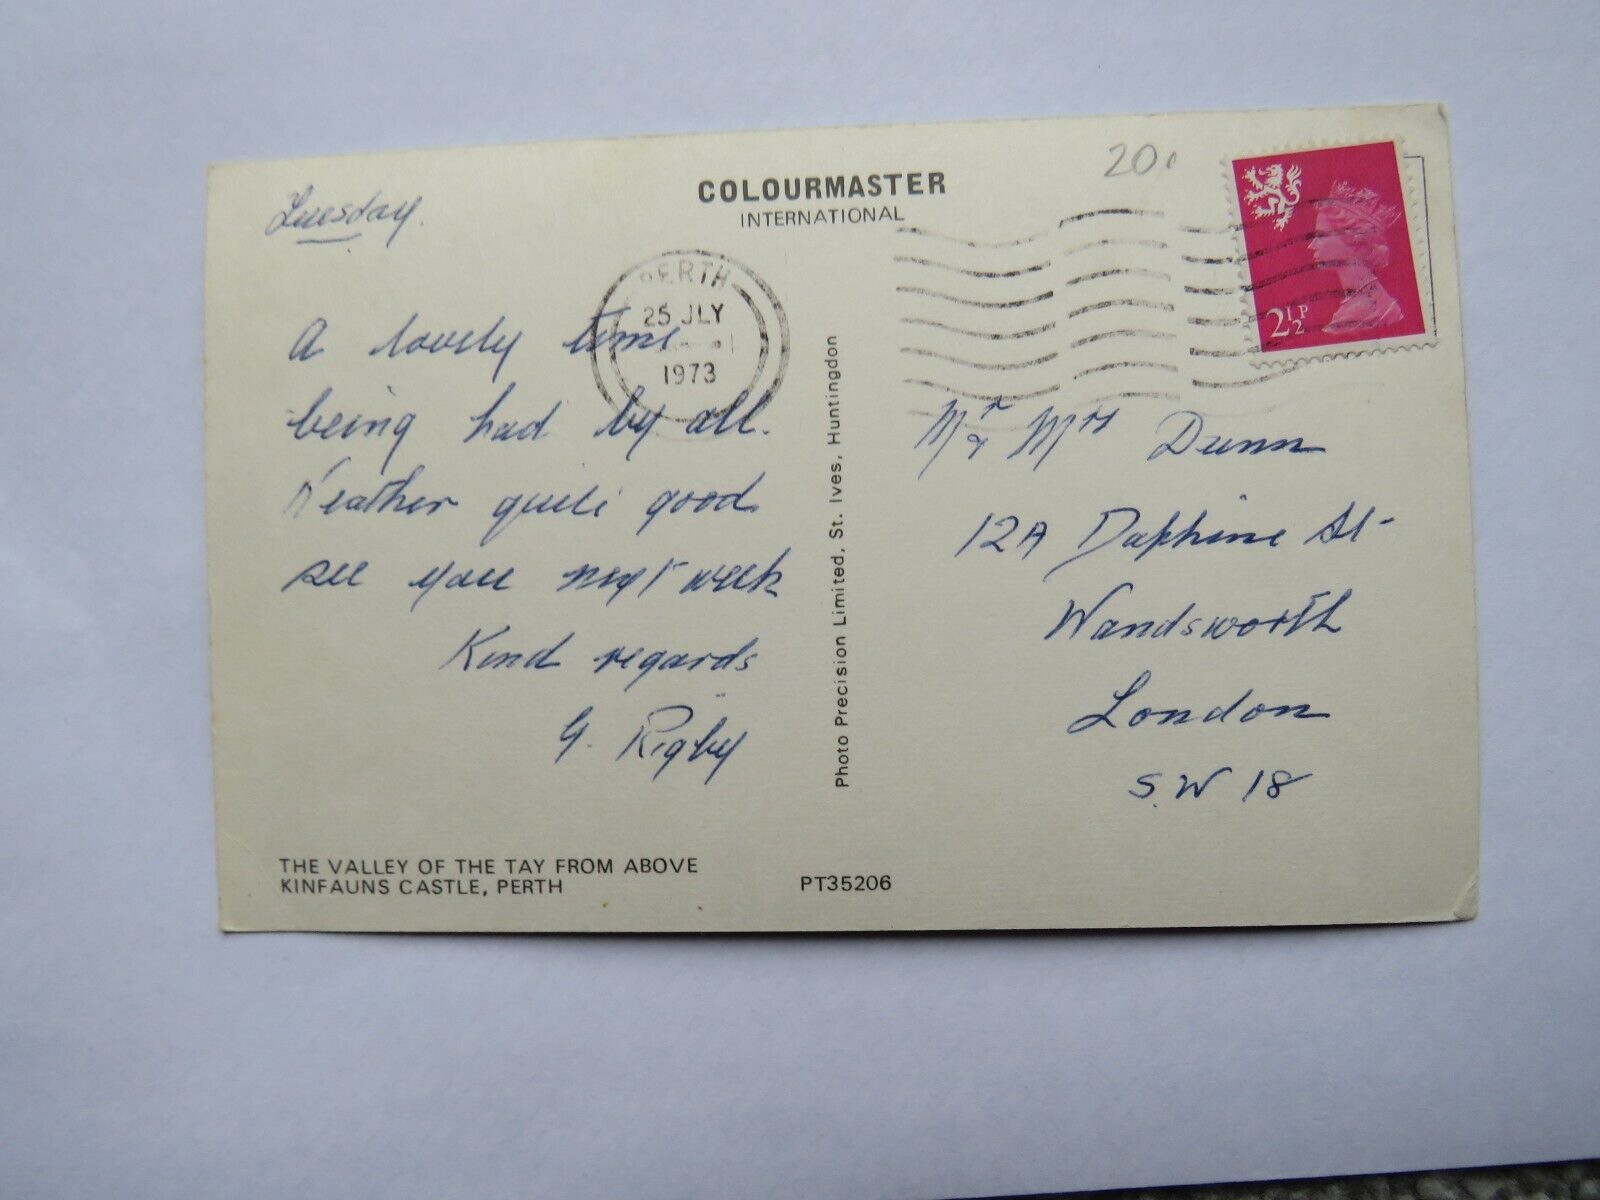 COLOURMASTER
INTERNATIONAL
20
2½P
Tuesday.
PERTH
25 JLY
1973
A lovely time
being had by all.
Weather quite good
see you next week
Kind regards
G. Rigby
THE VALLEY OF THE TAY FROM ABOVE
KINFAUNS CASTLE, PERTH
PT35206
Photo Precision Limited, St. Ives, Huntingdon
Mr & Mrs Dunn
12A Daphine St-
Wandsworth
London
S.W 18